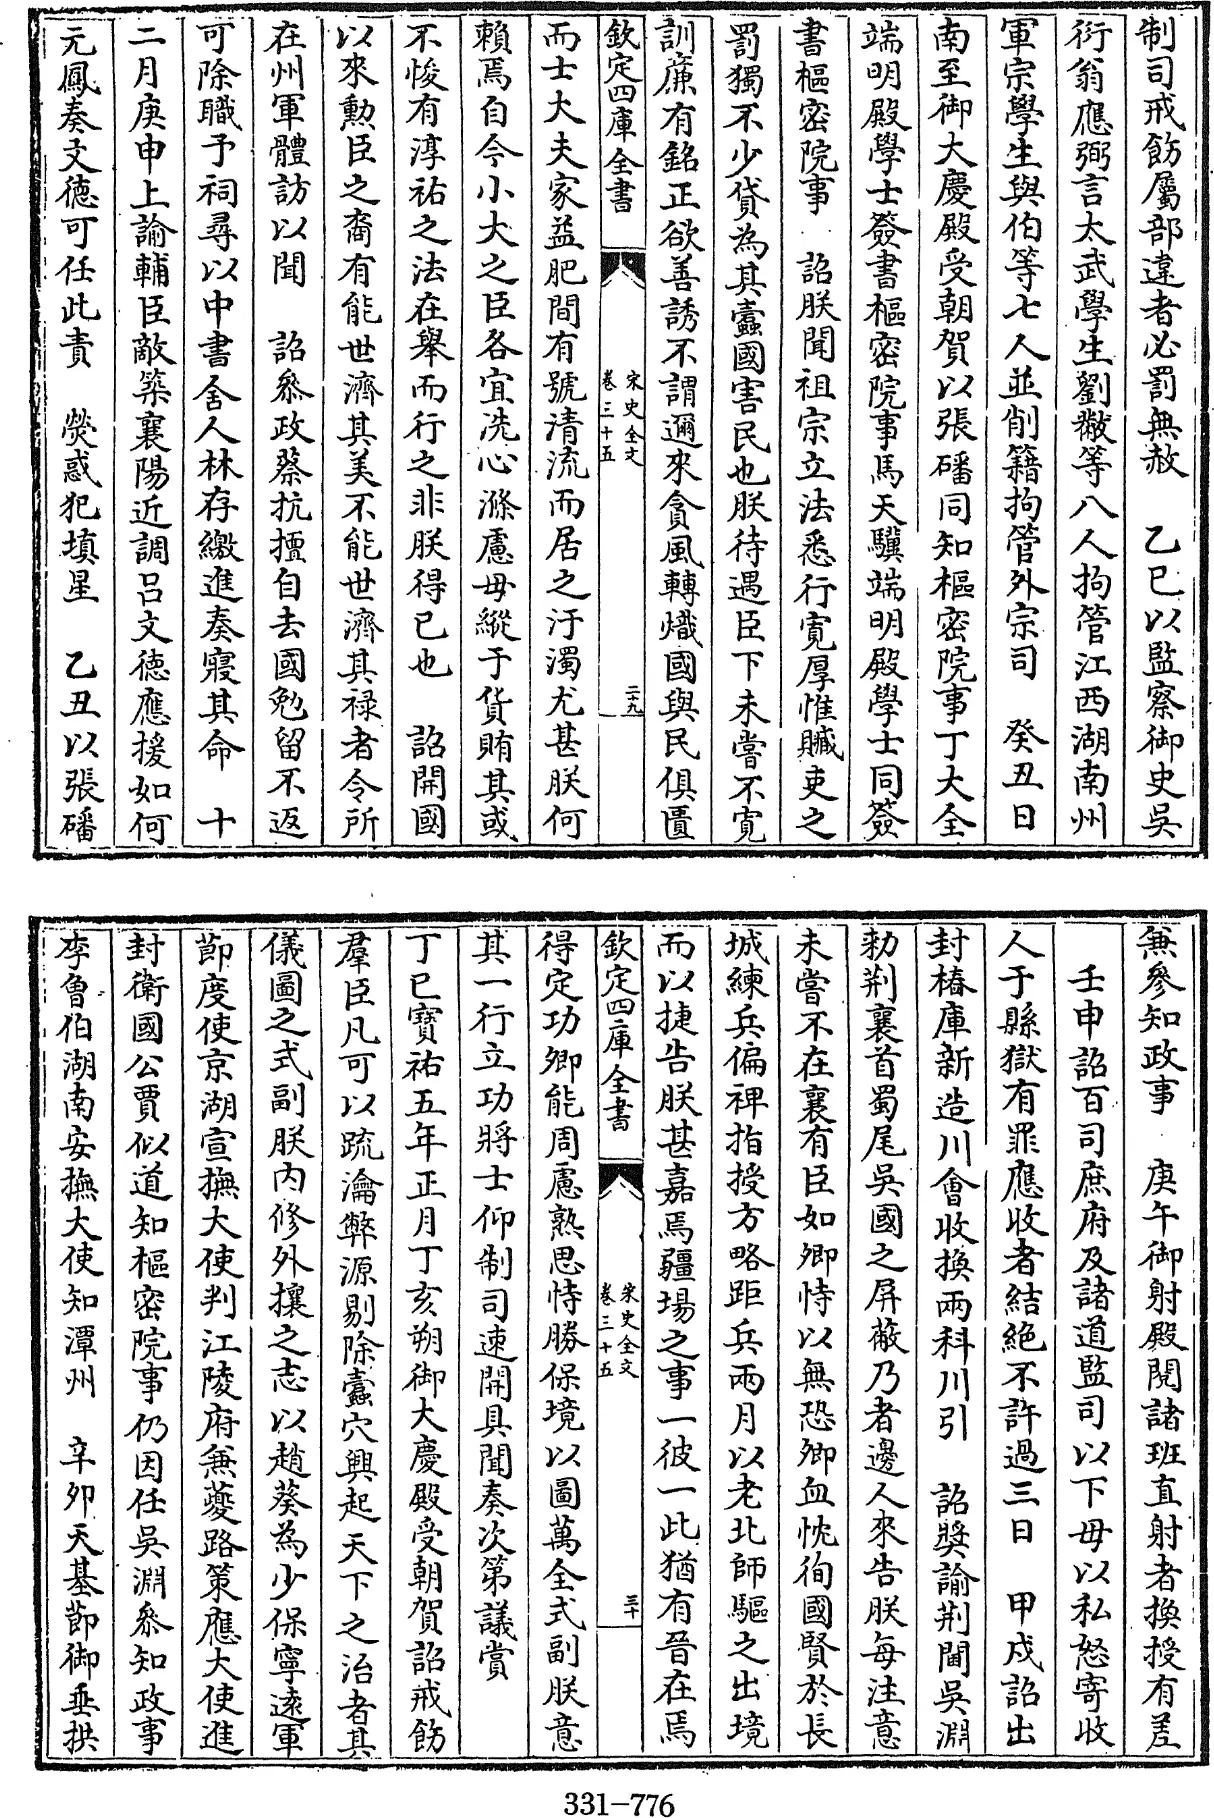 制司戒飭屬部違者必罰無赦　乙巳以監察御史吳
衍翁應弼言太武學生劉黻等八人拘管江西湖南州
軍宗學生與伯等七人並削籍拘管外宗司　癸丑日
南至御大慶殿受朝賀以張磻同知樞密院事丁大全
端明殿學士簽書樞密院事馬天驥端明殿學士同簽
書樞密院事　詔朕聞祖宗立法悉行寬厚惟贓吏之
罰獨不少貸為其蠹國害民也朕待遇臣下未嘗不寬
訓廉有銘正欲善誘不謂邇來貪風轉熾國與民俱匱
欽定四庫全書　宋史全文　卷三十五　二十九
而士大夫家益肥間有號清流而居之汙濁尤甚朕何
賴焉自今小大之臣各宜洗心滌慮毋縱于貨賄其或
不悛有淳祐之法在舉而行之非朕得已也　詔開國
以來勲臣之裔有能世濟其美不能世濟其祿者令所
在州軍體訪以聞　詔叅政蔡抗擅自去國勉留不返
可除職予祠尋以中書舍人林存繳進奏寢其命　十
二月庚申上諭輔臣敵築襄陽近調呂文德應援如何
元鳳奏文德可任此責　熒惑犯填星　乙丑以張磻
兼參知政事　庚午御射殿閱諸班直射者換授有差
壬申詔百司庶府及諸道監司以下毋以私怒寄收
人于縣獄有罪應收者結絕不許過三日　甲戌詔出
封樁庫新造川會收換兩料川引　詔獎諭荆閫吳淵
勑荆襄首蜀尾吳國之屏蔽乃者邊人來告朕每注意
未嘗不在襄有臣如卿恃以無恐卿血忱徇國賢於長
城練兵偏裨指授方略距兵兩月以老北師驅之出境
而以捷告朕甚嘉焉疆場之事一彼一此猶有晉在焉
欽定四庫全書　宋史全文　卷三十五　三十
得定功卿能周慮熟思恃勝保境以圖萬全式副朕意
其一行立功將士仰制司速開具聞奏次第議賞
丁巳寶祐五年正月丁亥朔御大慶殿受朝賀詔戒飭
羣臣凡可以疏瀹弊源剔除蠹穴興起天下之治者其
儀圖之式副朕內修外攘之志以趙葵為少保寧遠軍
節度使京湖宣撫大使判江陵府兼夔路策應大使進
封衛國公賈似道知樞密院事仍因任吳淵叅知政事
李曾伯湖南安撫大使知潭州　辛卯天基節御垂拱
331-776